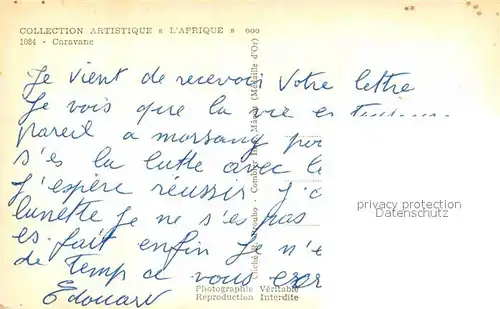 COLLECTION ARTISTIQUE « L'AFRIQUE »
1084 - Caravane
Je vient de recevoir Votre lettre
Je vois que la vie es
pareil a morsang
s'es la lutte avec
J'espère réussir
lunette Je ne s'es pas
es fait enfin Je
de Temps a vous
Edouard
Photographie Véritable
Reproduction Interdite
privacy protection
Datenschutz